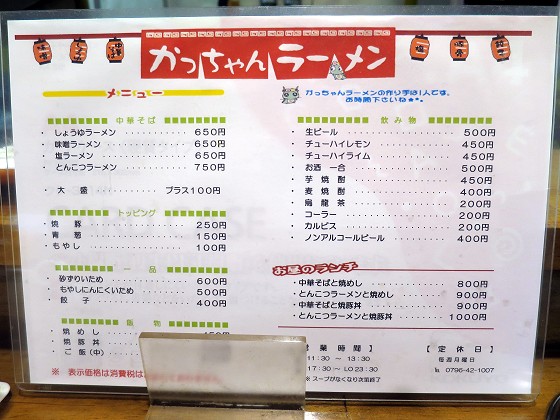 かっちゃんラーメン
メニュー
中華そば
・しょうゆラーメン 650円
・味噌ラーメン 650円
・塩ラーメン 650円
・とんこつラーメン 750円
・大 盛 プラス100円
トッピング
・焼 豚 250円
・青 葱 150円
・もやし 100円
一 品
・砂ずりいため 600円
・もやしにんにくいため 500円
・餃 子 400円
飯 物
・焼めし
・焼豚丼
・ご飯(中)
※ 表示価格は消費税は
かっちゃんラーメンの作り手は1人です。
お時間下さいね
飲 み 物
・生ビール 500円
・チューハイレモン 450円
・チューハイライム 450円
・お酒 一合 500円
・芋 焼 酎 400円
・麦 焼 酎 400円
・烏 龍 茶 200円
・コーラー 200円
・カルピス 200円
・ノンアルコールビール 400円
お昼のランチ
・中華そばと焼めし 800円
・とんこつラーメンと焼めし 900円
・中華そばと焼豚丼 900円
・とんこつラーメンと焼豚丼 1000円
営 業 時 間 】
11:30 ～ 13:30
17:30 ～ LO23:30
※ スープがなくなり次第終了
【 定 休 日 】
毎週月曜日
℡ 0796-42-1007